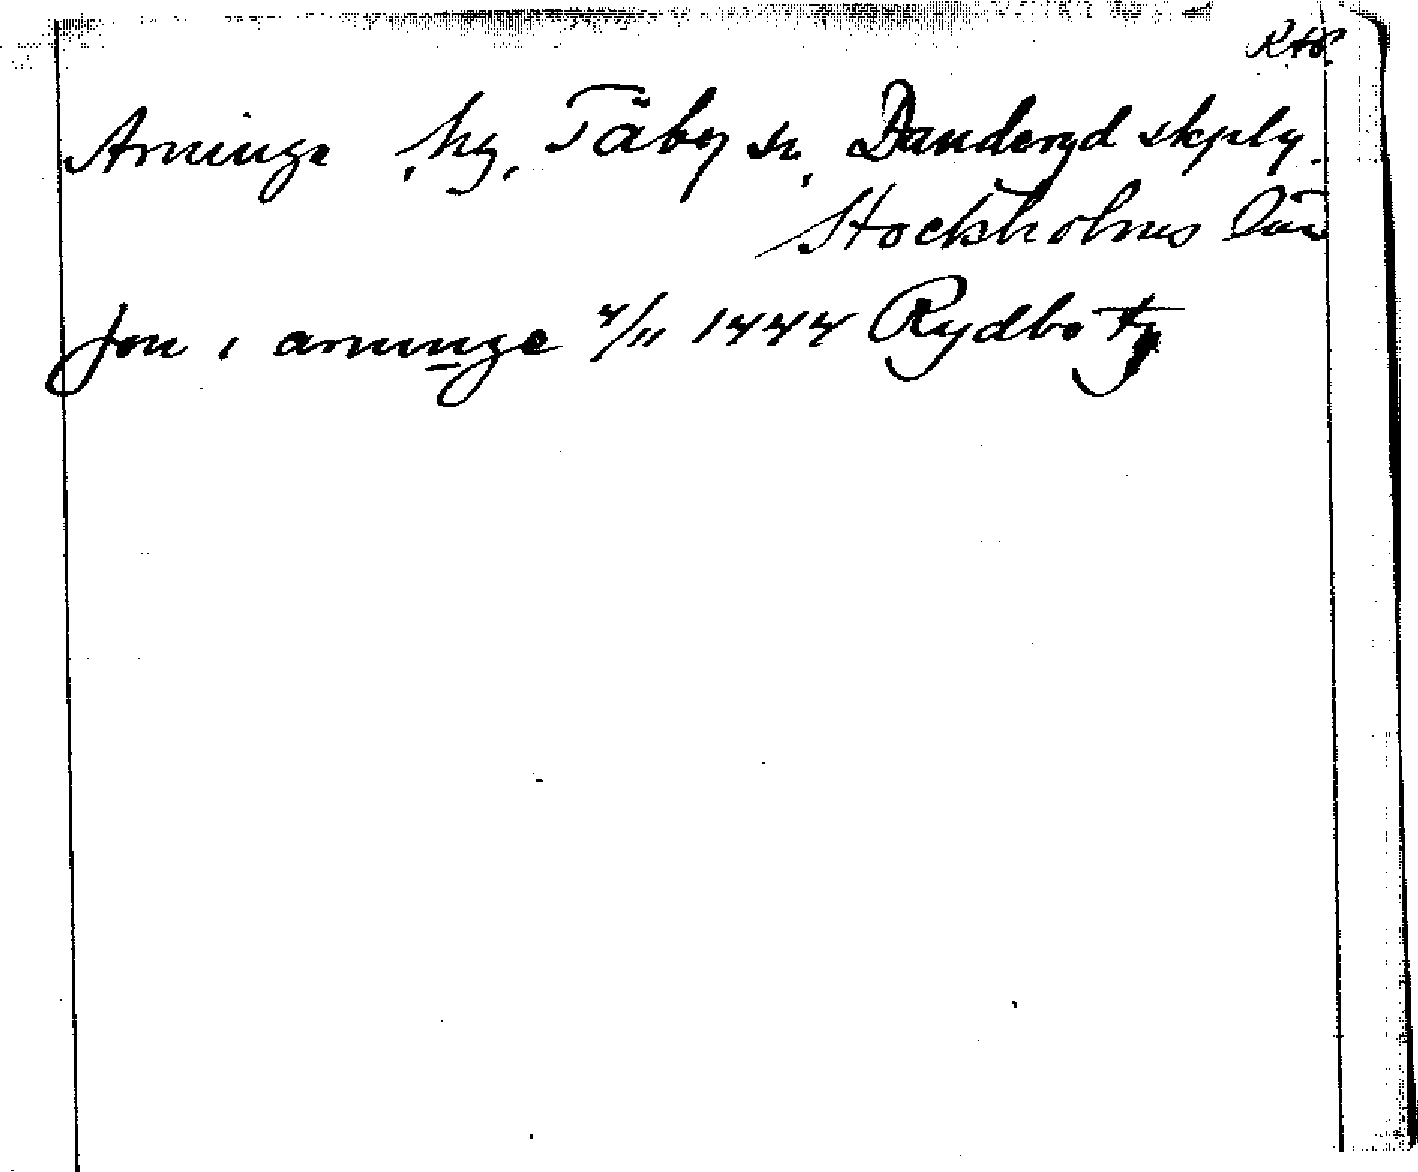 Arninge, hg, Täby sn, Danderyd skplg.
Stockholms län
Jon i arninge 4/11 1444 Rydbo